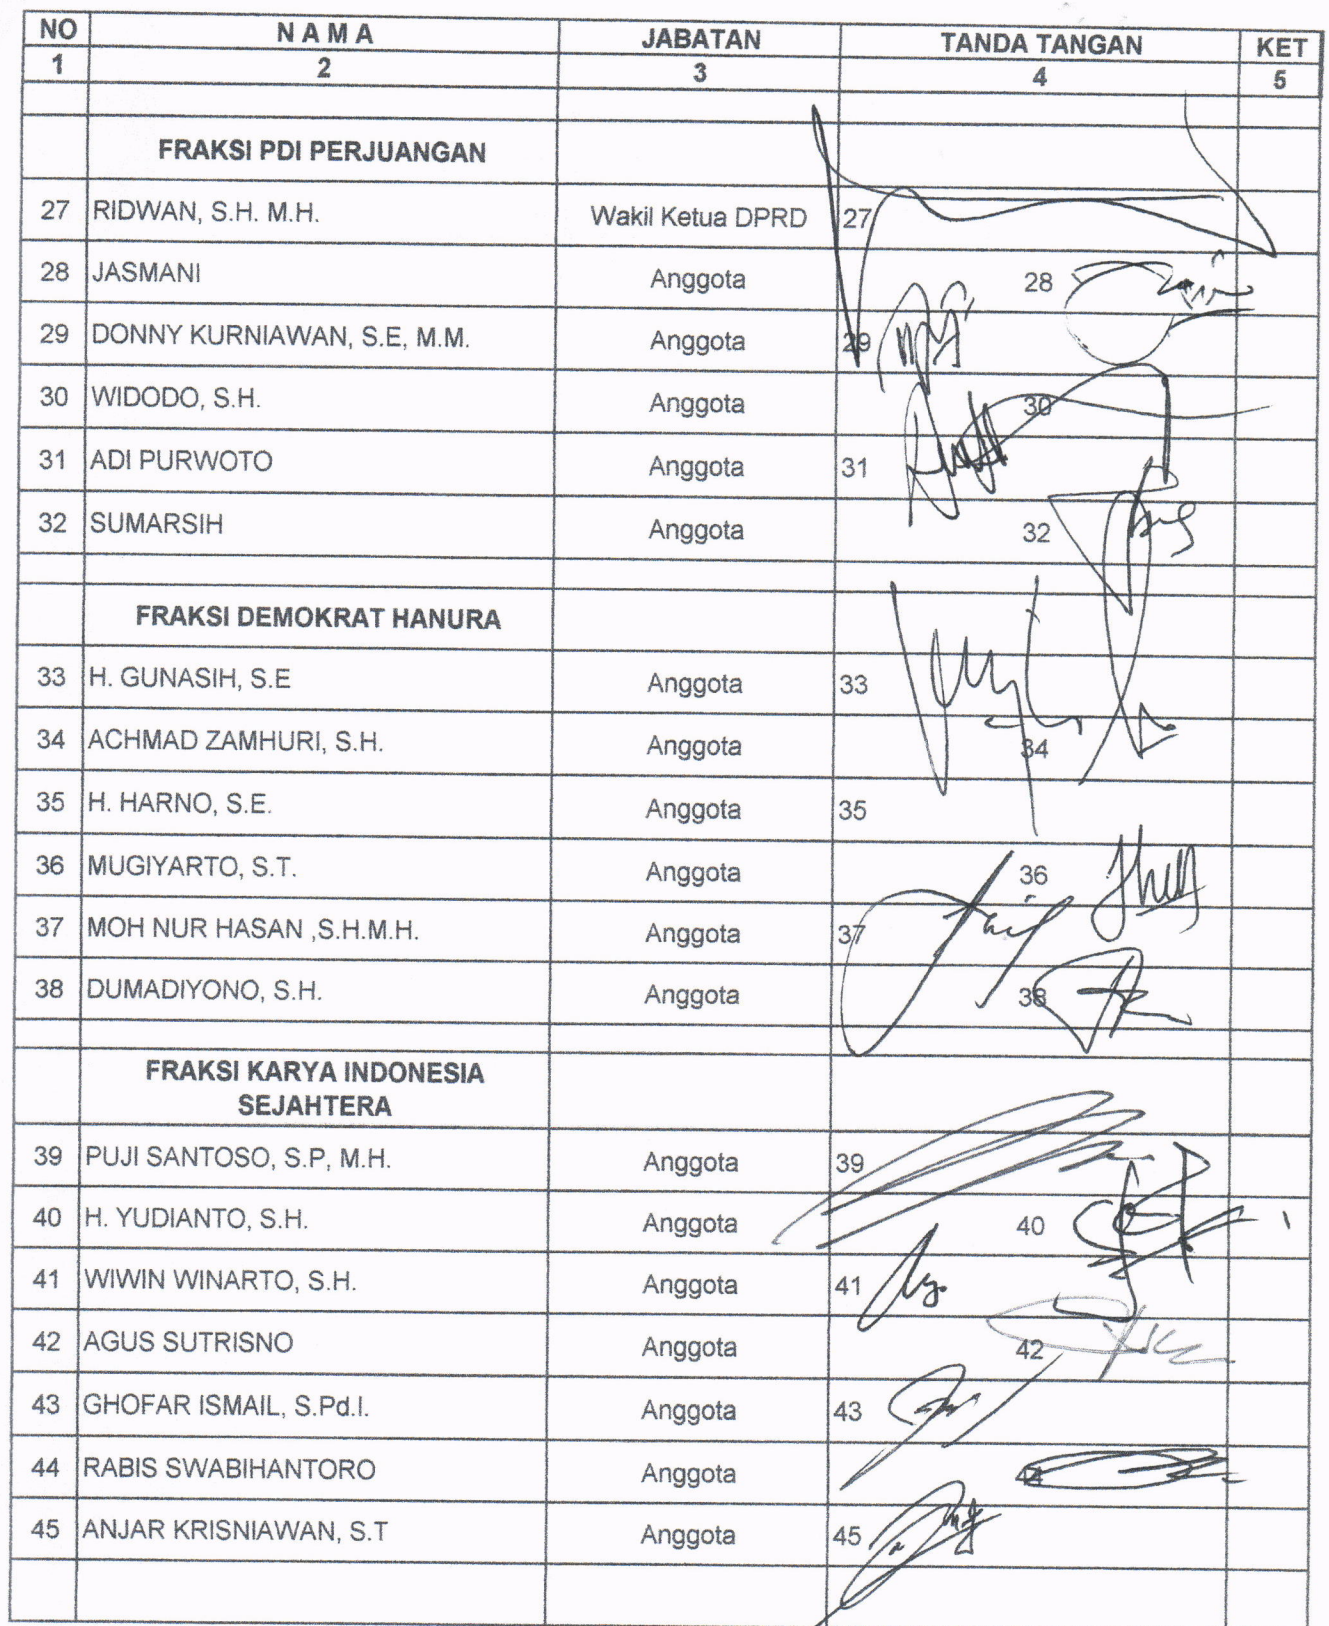 NO N A M A JABATAN TANDA TANGAN KET
1 2 3 4 5
FRAKSI PDI PERJUANGAN
27 RIDWAN, S.H. M.H. Wakil Ketua DPRD 27
28 JASMANI Anggota 28
29 DONNY KURNIAWAN, S.E, M.M. Anggota 29
30 WIDODO, S.H. Anggota 30
31 ADI PURWOTO Anggota 31
32 SUMARSIH Anggota 32
FRAKSI DEMOKRAT HANURA
33 H. GUNASIH, S.E Anggota 33
34 ACHMAD ZAMHURI, S.H. Anggota 34
35 H. HARNO, S.E. Anggota 35
36 MUGIYARTO, S.T. Anggota 36
37 MOH NUR HASAN ,S.H.M.H. Anggota 37
38 DUMADIYONO, S.H. Anggota 38
FRAKSI KARYA INDONESIA
SEJAHTERA
39 PUJI SANTOSO, S.P, M.H. Anggota 39
40 H. YUDIANTO, S.H. Anggota 40
41 WIWIN WINARTO, S.H. Anggota 41
42 AGUS SUTRISNO Anggota 42
43 GHOFAR ISMAIL, S.Pd.I. Anggota 43
44 RABIS SWABIHANTORO Anggota 44
45 ANJAR KRISNIAWAN, S.T Anggota 45